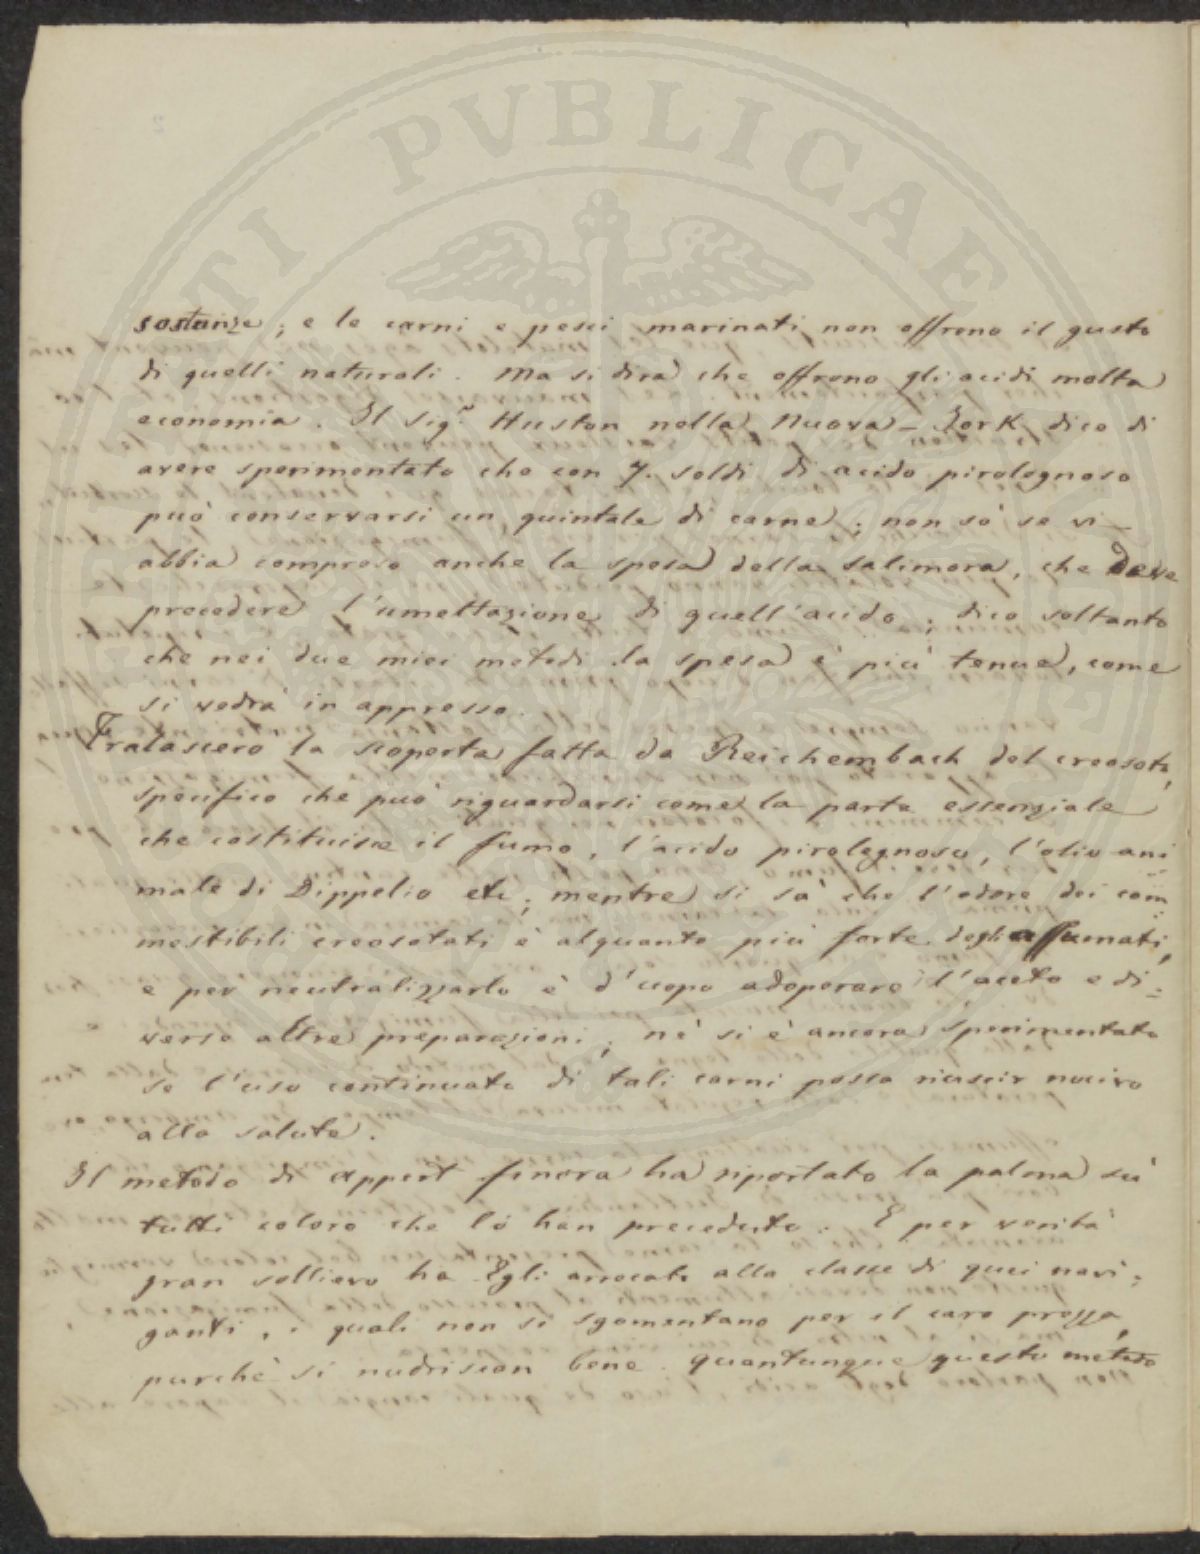 PVBLICAE
sostanze; e le carni e pesci marinati non offrono il gusto
di quelli naturali. Ma si dirà che offrono gli acidi molta
economia. Il Sigr. Huston nella Nuova-York dice di
avere sperimentato che con 7. soldi di acido pirolegnoso
può conservarsi un quintale di carne; non sò se vi
abbia compreso anche la spesa della salimora, che deve
precedere l'umettazione di quell'acido; dico soltanto
che nei due miei metodi la spesa è più tenue, come
si vedrà in appresso.
Tralascerò la scoperta fatta da Reichembach del creosoto,
specifico che può riguardarsi come la parte essenziale
che costituisce il fumo, l'acido pirolegnoso, l'olio ani
male di Dippelio etc; mentre si sa che l'odore dei com
mestibili creosotati è alquanto più forte degli affumati,
e per neutralizzarlo è d'uopo adoperare l'aceto e di=
verse altre preparazioni; nè si è ancora sperimentato
se l'uso continuato di tali carni possa riuscir nocivo
alla salute.
Il metodo di Appert finora ha riportato la palma sù
tutti coloro che lò han preceduto. E per verità
gran sollievo ha Egli arrecato alla classe di quei navi=
ganti, i quali non si sgomentano per il caro prezzo,
purchè si nudriscon bene. Quantunque questo metodo